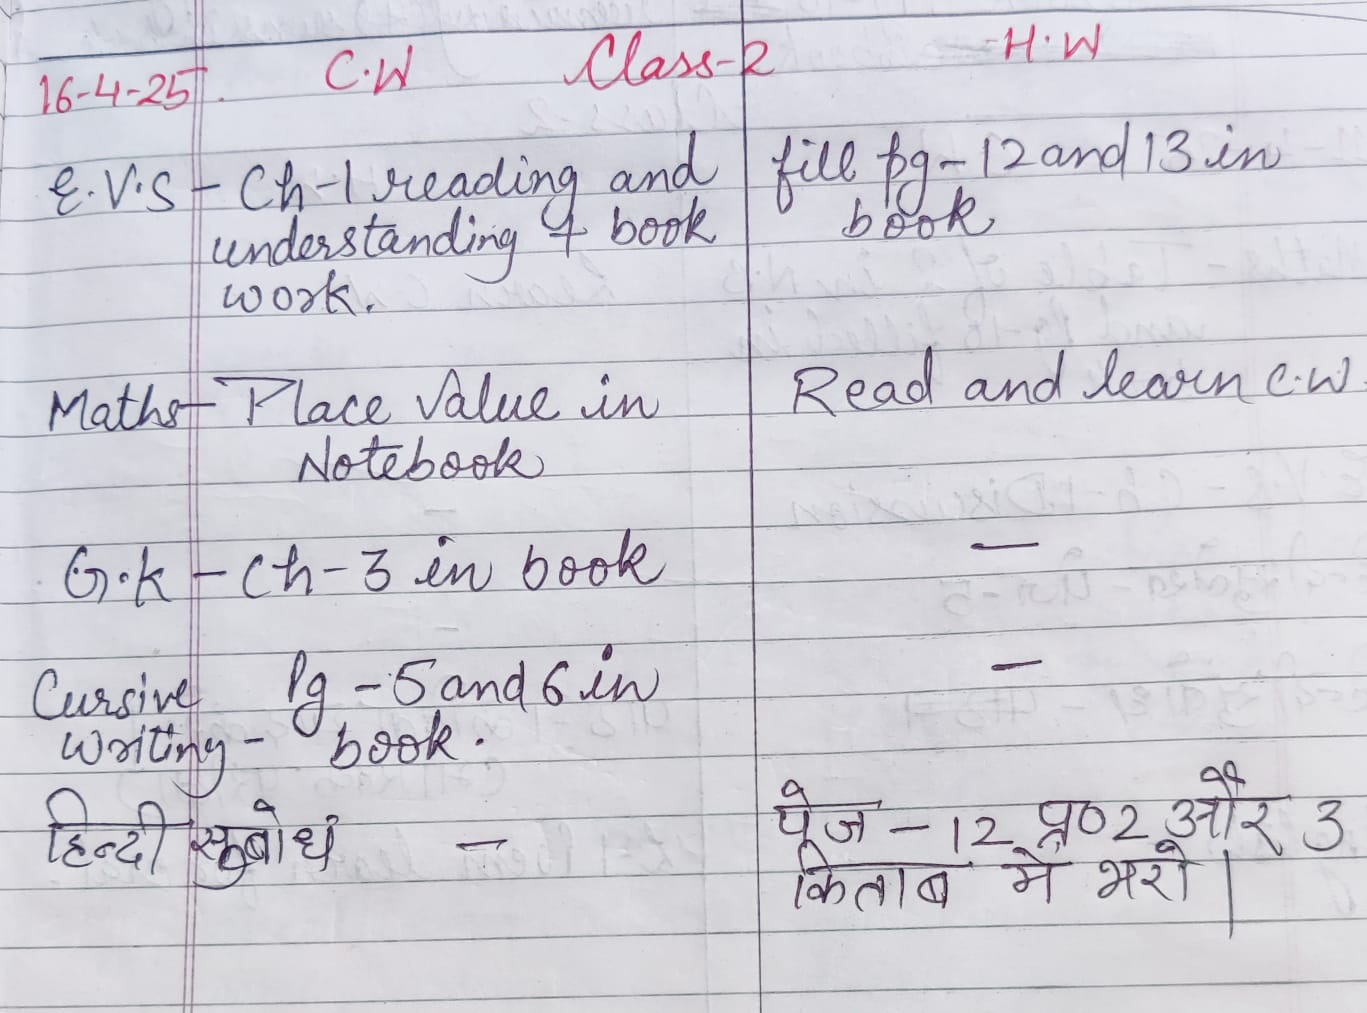 16-4-25. C.W Class-2 H.W
E.V.S - Ch-1 reading and fill pg-12 and 13 in
understanding + book book
work.
Maths - Place Value in Read and learn C.W
Notebook
G.K - Ch-3 in book —
Cursive Pg-5 and 6 in —
Writing - book.
हिन्दी सुबोध — पेज-12 प्र०2 और 3
किताब में भरो।